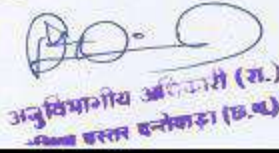 अनुविभागीय अधिकारी (रा.)
बस्तर दन्तेवाड़ा (छ.ग.)